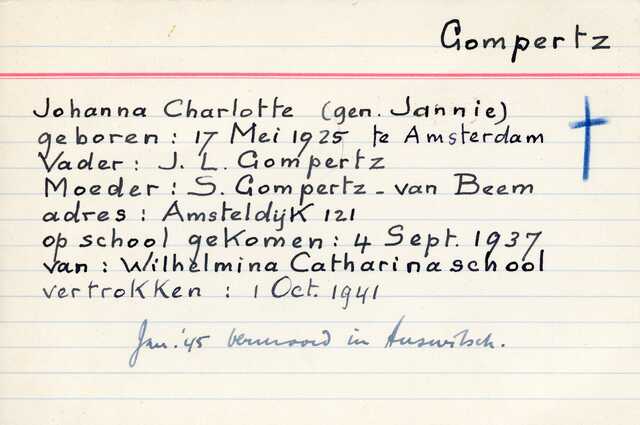 Gompertz
Johanna Charlotte (gen. Jannie)
geboren : 17 Mei 1925 te Amsterdam
Vader : J. L. Gompertz
Moeder : S. Gompertz - van Beem
adres : Amsteldijk 121
op school gekomen : 4 Sept. 1937
van : Wilhelmina Catharinaschool
vertrokken : 1 Oct. 1941
Jan. '45 vermoord in Auswitsch.